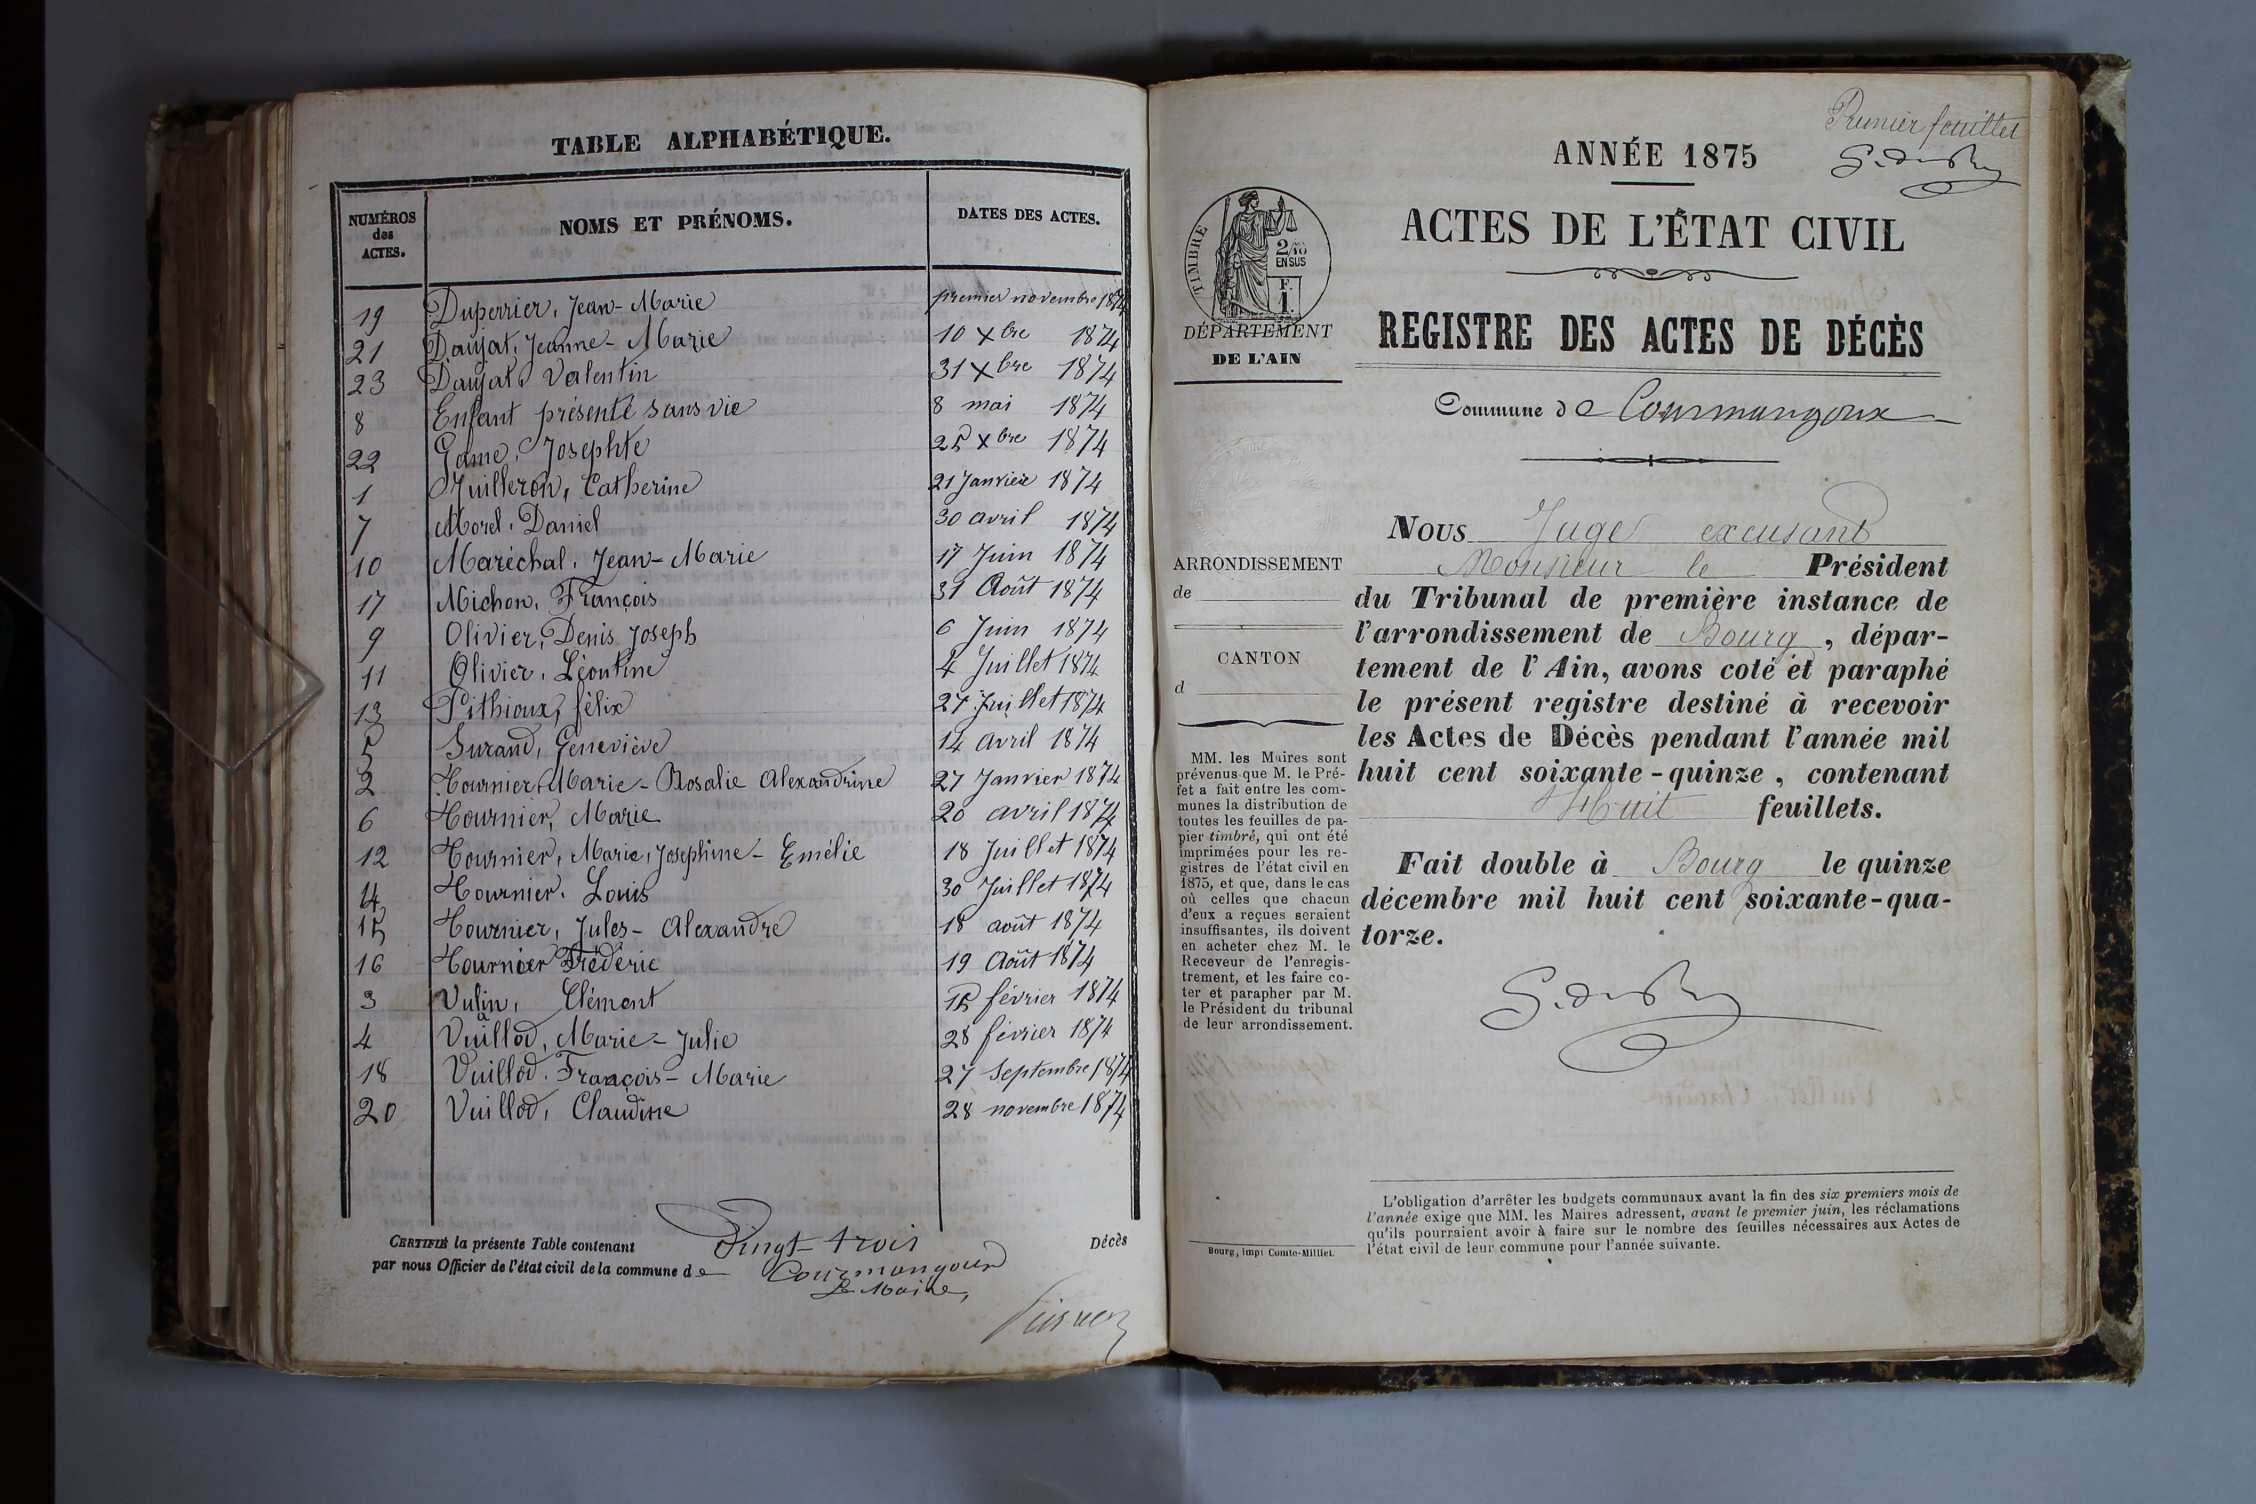 TABLE ALPHABÉTIQUE.
NUMÉROS des ACTES. NOMS ET PRÉNOMS. DATES DES ACTES.
19 Duperrier, Jean-Marie premier novembre 1874
21 Daujat, Jeanne-Marie 10 Xbre 1874
23 Daujat, Valentin 31 Xbre 1874
8 Enfant présenté sans vie 8 mai 1874
22 Game, Josephte 25 Xbre 1874
1 Juilleron, Catherine 21 Janvier 1874
7 Morel, Daniel 30 avril 1874
10 Maréchal, Jean-Marie 17 Juin 1874
17 Michon, François 31 Août 1874
9 Olivier, Denis Joseph 6 Juin 1874
11 Olivier, Léontine 4 Juillet 1874
13 Pithioux, félix 27 Juillet 1874
5 Surand, Geneviève 14 avril 1874
2 Tournier, Marie-Rosalie Alexandrine 27 Janvier 1874
6 Tournier, Marie 20 avril 1874
12 Tournier, Marie, Josephine-Emélie 18 Juillet 1874
14 Tournier, Louis 30 Juillet 1874
15 Tournier, Jules-Alexandre 18 août 1874
16 Tournier Frédéric 19 Août 1874
3 Vulin, Clément 15 février 1874
4 Vuillod, Marie-Julie 28 février 1874
18 Vuillod, François-Marie 27 Septembre 1874
20 Vuillod, Claudine 28 novembre 1874
CERTIFIÉ la présente Table contenant Vingt-trois Décès
par nous Officier de l'état civil de la commune de Courmangoux
Le Maire,
Premier feuillet
ANNÉE 1875
ACTES DE L'ÉTAT CIVIL
TIMBRE
2/10
EN SUS
F.
1.
DÉPARTEMENT
DE L'AIN
REGISTRE DES ACTES DE DÉCÈS
Commune de Courmangoux
ARRONDISSEMENT
de
CANTON
d
MM. les Maires sont
prévenus que M. le Pré-
fet a fait entre les com-
munes la distribution de
toutes les feuilles de pa-
pier timbré, qui ont été
imprimées pour les re-
gistres de l'état civil en
1875, et que, dans le cas
où celles que chacun
d'eux a reçues seraient
insuffisantes, ils doivent
en acheter chez M. le
Receveur de l'enregis-
trement, et les faire co-
ter et parapher par M.
le Président du tribunal
de leur arrondissement.
Bourg, imp. Comte-Milliet.
NOUS Juge excusant
Monsieur le Président
du Tribunal de première instance de
l'arrondissement de Bourg, dépar-
tement de l'Ain, avons coté et paraphé
le présent registre destiné à recevoir
les Actes de Décès pendant l'année mil
huit cent soixante-quinze, contenant
Huit feuillets.
Fait double à Bourg le quinze
décembre mil huit cent soixante-qua-
torze.
L'obligation d'arrêter les budgets communaux avant la fin des six premiers mois de
l'année exige que MM. les Maires adressent, avant le premier juin, les réclamations
qu'ils pourraient avoir à faire sur le nombre des feuilles nécessaires aux Actes de
l'état civil de leur commune pour l'année suivante.